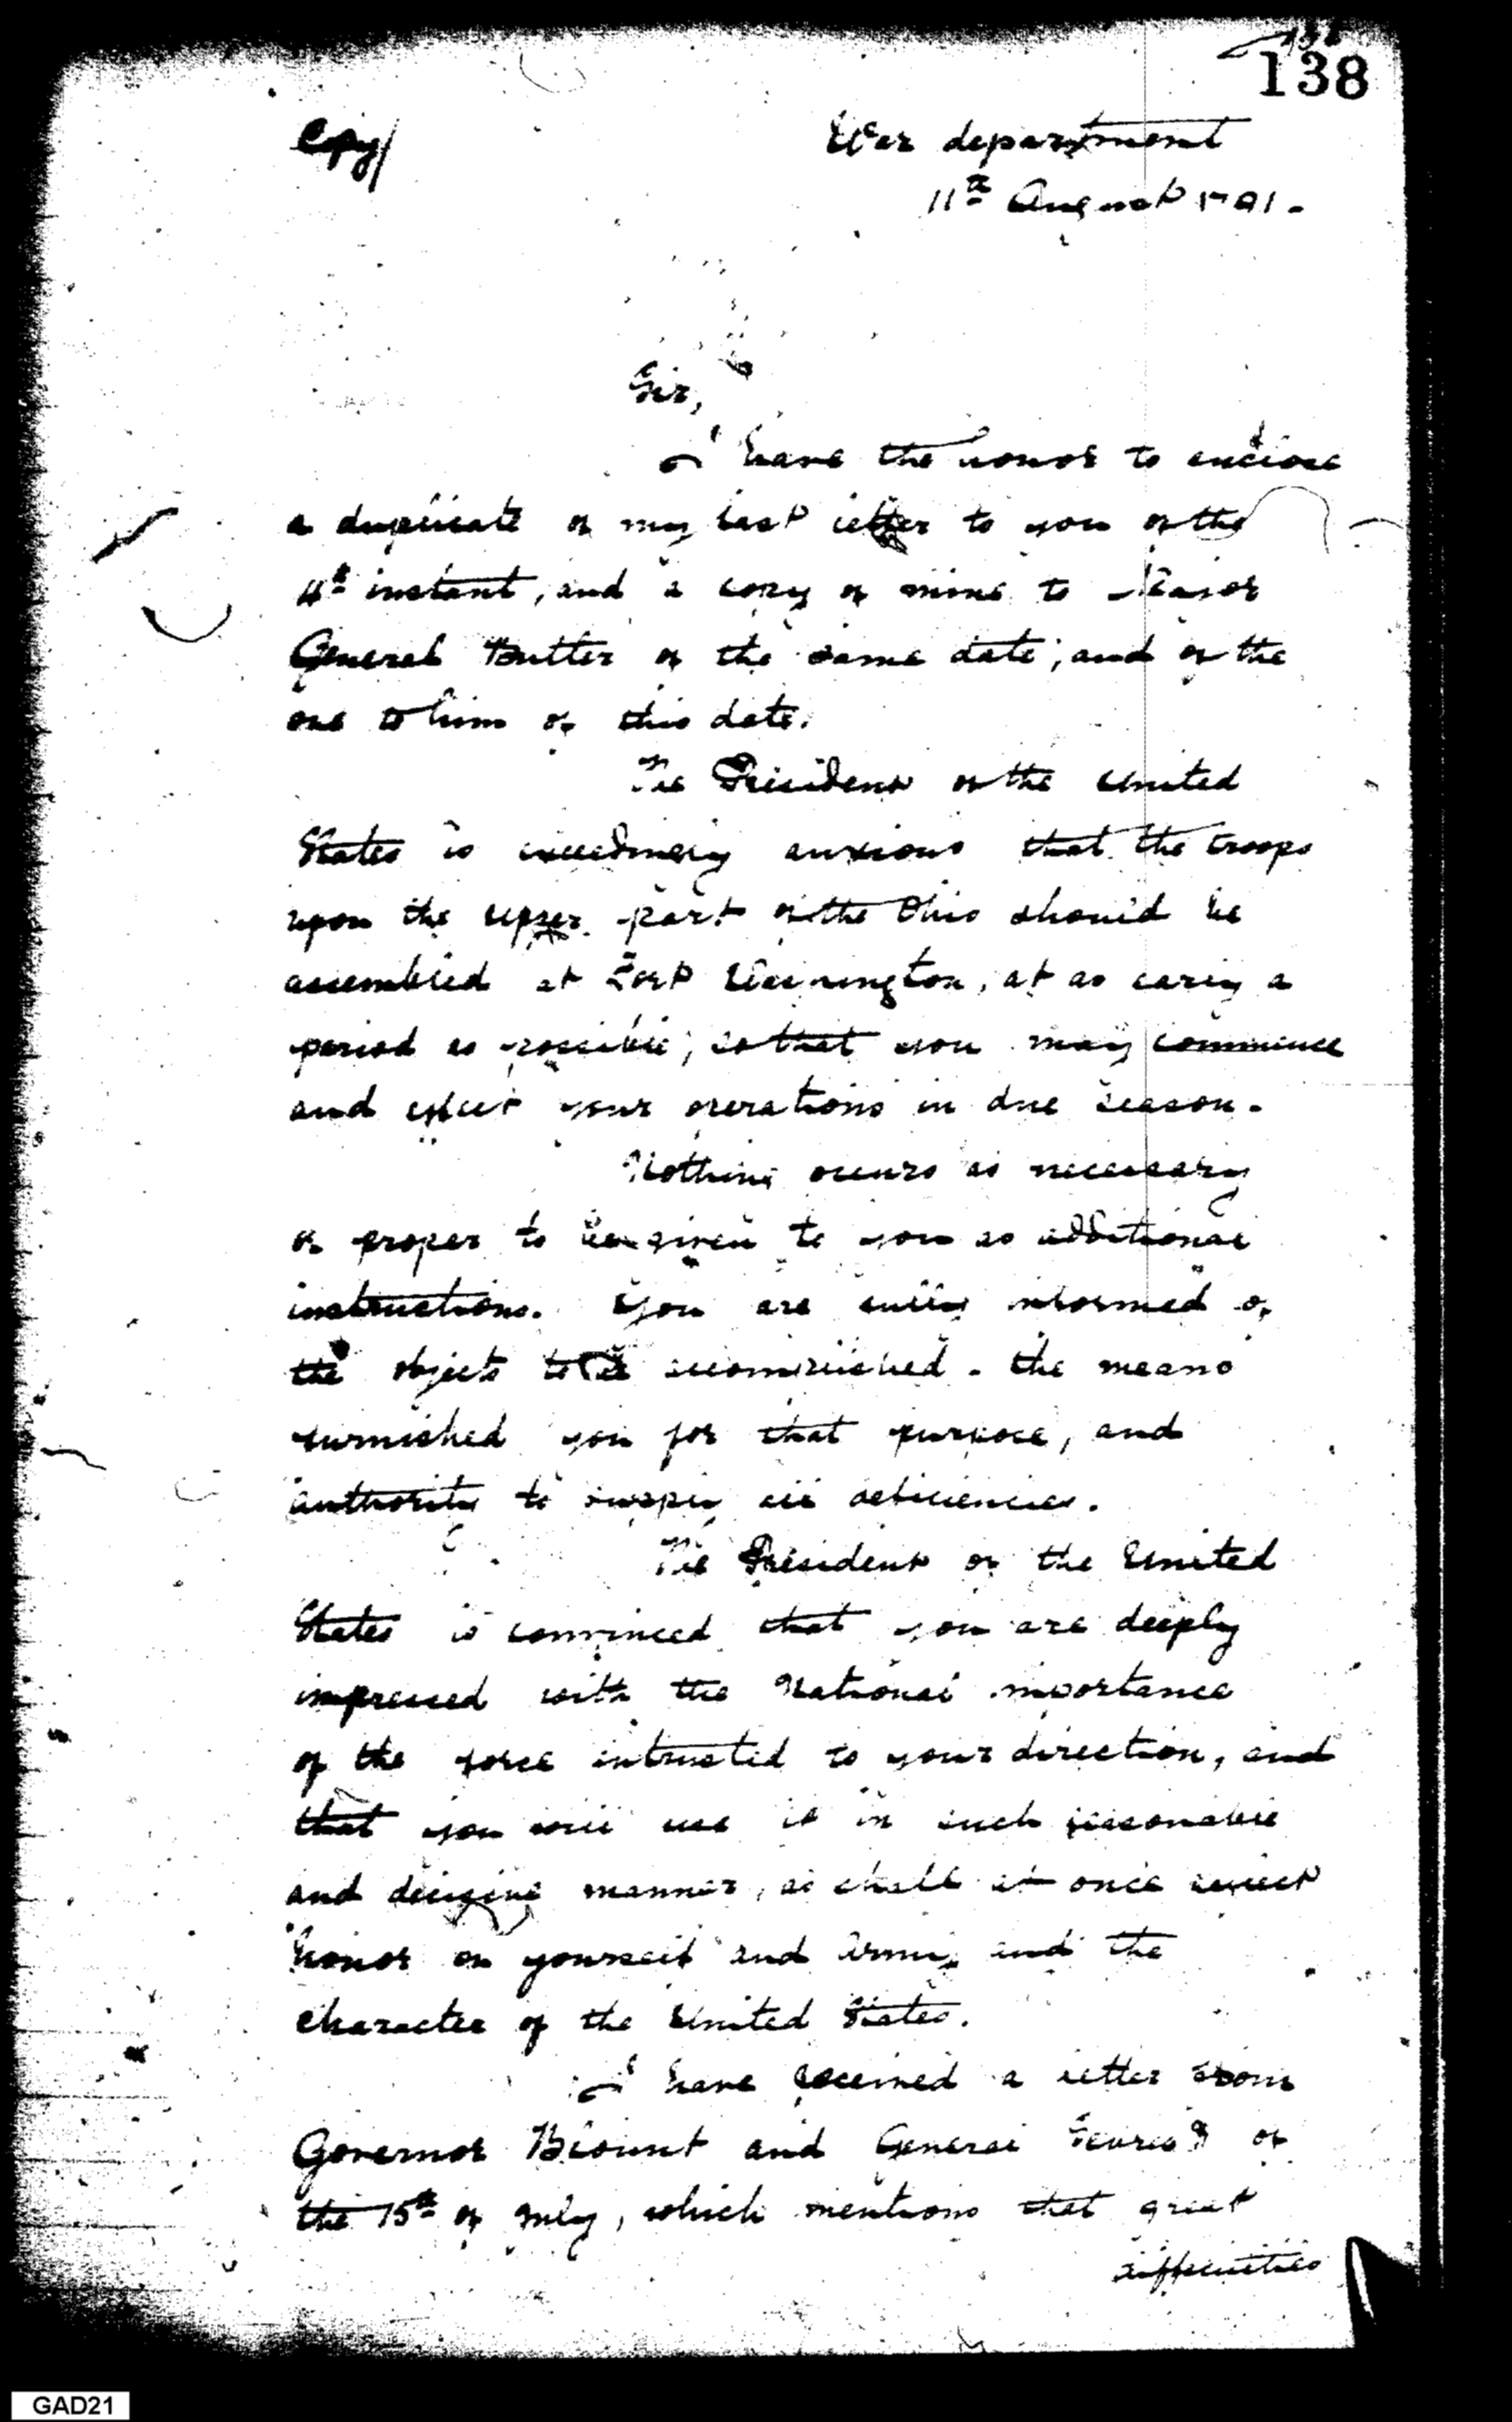 138
Copy/
War department
11th August 1791.
Sir,
I have the honor to enclose
a duplicate of my last letter to you of the
4th instant, and a copy of mine to Major
General Butler of the same date; and of the
one to him of this date.
The President of the United
States is exceedingly anxious that the troops
upon the upper part of the Ohio should be
assembled at Fort Washington, at as early a
period as possible; so that you may commence
and effect your operations in due season.
Nothing occurs as necessary
or proper to be given to you as additional
instructions. You are fully informed of
the objects to be accomplished - the means
furnished you for that purpose, and
authority to supply all deficiencies.
The President of the United
States is convinced that you are deeply
impressed with the National importance
of the force intrusted to your direction, and
that you will use it in such seasonable
and decisive manner, as shall at once reflect
honor on yourself and Army, and the
character of the United States.
I have received a letter from
Governor Blount and General Sevier of
the 15th of July, which mentions that great
difficulties
GAD21